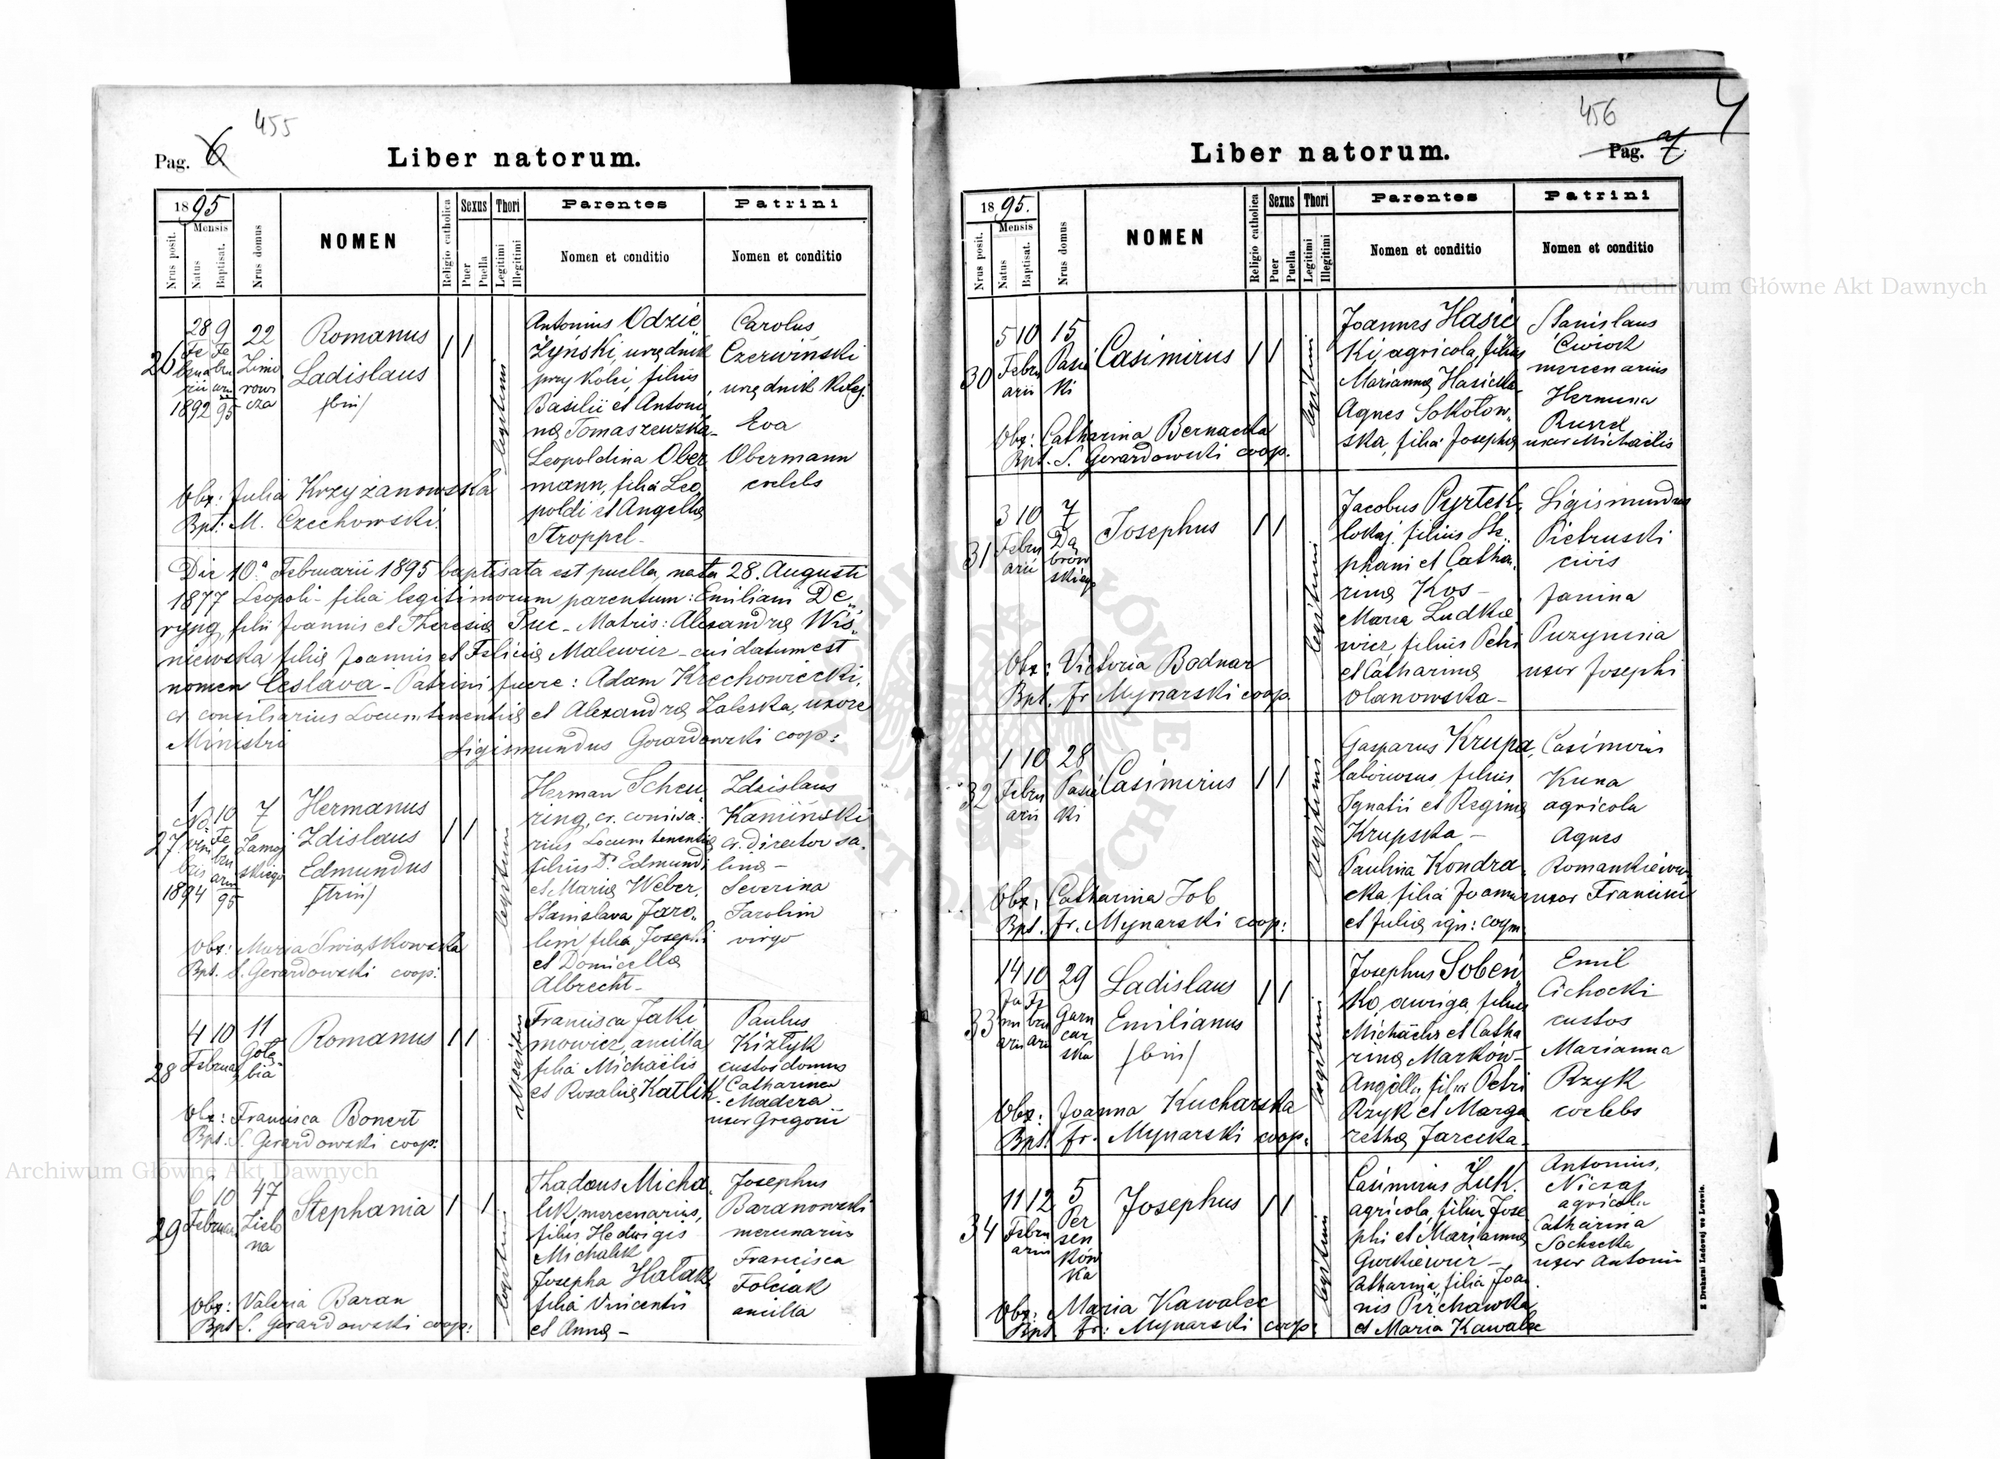 455
Pag. 6
Liber natorum.
1895
Mensis
Nrus posit.
Natus
Baptisat.
Nrus domus
NOMEN
Religio catholica
Sexus
Puer
Puella
Thori
Legitimi
Illegitimi
Parentes
Nomen et conditio
Patrini
Nomen et conditio
26
28 9 22
Fe Fe Zimo
brua bru rowi
rii arii cza
1892 95
Romanus
Ladislaus
/bin/
legitimi
Antonius Odzie
Żyński, urzędnik
przy kolei, filius
Basilii et Antoni
na Tomaszewska
Leopoldina Ober
mann, filia Leo
poldi et Angella
Stroppel
Carolus
Czerwiński
urzędnik kolej.
Eva
Obermann
coelebs
Obs: Julia Krzyżanowska
Bpt: M. Czechowski.
Die 10a Februarii 1895 baptisata est puella, nata 28. Augusti
1877 Leopoli filia legitimorum parentum: Emiliani De
ryng, filii Joannis et Theresia Puc - Matris: Alexandra Wiś
niewska filia Joannis et Felicia Malewicz - cui datum est
nomen Ceslava - Patrini fuere: Adam Krechowiecki,
cr. consiliarius Locumtenentiæ et Alexandra Zaleska, uxore
Ministri
Sigismundus Gorardowski coop:
27
10 7
Fe Zamoj
bru skiego
1894 95
Hermanus
Zdislaus
Edmundus
/trin/
Herman Scheu
ring, cr. consilia
rius Locumtenentiæ
filius Dr. Edmundi
et Maria Weber
Stanislava Jaro
lim filia Josephi
et Domicella
Albrecht
Zdzislaus
Kamiński
cr. director sa
linæ
Severina
Jarolim
virgo
Obs: Maria Świątkowska
Bpt. S. Gerardowski coop:
28
4 10 11
Februa Gołę
bia
Romanus
illegitimi
Francisca Jaki
mowicz, ancilla
filia Michaëlis
et Rosalia Katlik
Paulus
Kiztyk
custos domus
Catharina
Madera
uxor Gregorii
Obs: Francisca Bonert
Bpt. S. Gerardowski coop:
29
6 10 47
Februar Zielo
na
Stephania
legitimi
Thadæus Micha
lik, mercenarius,
filius Hedwigis
Michalik
Josepha Hałak
filia Vincentii
et Anna
Josephus
Baranowski
mercenarius
Francisca
Folciak
ancilla
Obs: Valeria Baran
Bpt S. Gerardowski coop:
456
Pag. 7
Liber natorum.
1895.
Mensis
Nrus posit.
Natus
Baptisat.
Nrus domus
NOMEN
Religio catholica
Sexus
Puer
Puella
Thori
Legitimi
Illegitimi
Parentes
Nomen et conditio
Patrini
Nomen et conditio
30
5 10 15
Febru Pasie
arii ki
Casimirus
legitimi
Joannes Hasie
ki, agricola, filius
Marianna Hasicka
Agnes Sokołow
ska, filia Josepha
Stanislaus
Ćwiok
mercenarius
Hermina
uxor Michaëlis
Obs: Catharina Bernacka
Bpt. S. Gerardowski coop.
31
3 10 7
Febru Dą
arii brow
skiego
Josephus
legitimi
Jacobus Pyrtek
lokaj, filius Ste
phani et Catha
rina Kos
Maria Ludkie
wicz, filius Petri
et Catharina
Olanowska
Sigismundus
Pietruski
civis
Janina
Puzynina
uxor Josephi
Obs: Victoria Bodnar
Bpt. Fr. Mynarski coop.
32
1 10 28
Febru Pasie
arii ki
Casimirus
legitimi
Gasparus Krupa,
laboriosus, filius
Ignatii et Regina
Krupska
Paulina Kondra
cka, filia Joannis
et Julia ign: cogn.
Casimirus
Kuna
agricola
Agnes
Romankiewicz
uxor Francisci
Obs: Catharina Job
Bpt. Fr. Mynarski coop:
33
14 10 29
Ja Fe Garn
nu bru car
arii arii ska
Ladislaus
Emilianus
/bin/
legitimi
Josephus Sobeń
ko, auriga, filius
Michaëlis et Catha
rina Marków
Angela, filia Petri
Rzyk et Marga
retha Jarecka
Emil
Cichocki
custos
Marianna
Rzyk
coelebs
Obs: Joanna Kucharska
Bpt. Fr. Mynarski coop:
34
11 12 5
Febru Per
arii sen
ków
ka
Josephus
legitimi
Casimirus Żuk
agricola, filius Jose
phi et Marianna
Gurkiewicz
Catharina, filia Joan
nis Pirchawka
et Maria Kawalec
Antonius,
Niczaj
agricola
Catharina
Sochecka
uxor Antonii
Obs: Maria Kawalec
Bpt. Fr: Mynarski coop:
Z Drukarni Ludowej we Lwowie.
Archiwum Główne Akt Dawnych
Archiwum Główne Akt Dawnych